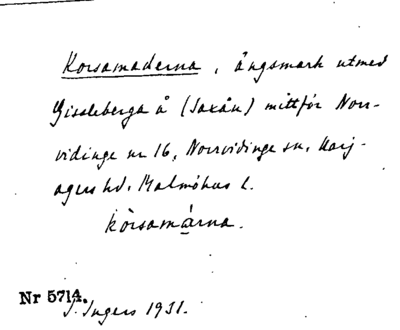 Korsamaderna, ängsmark utmed
Gissleberga å (Saxån) mittför Norr-
vidinge nr 16, Norrvidinge sn, Harj-
agers hd, Malmöhus l.
kòrsamárna.
Nr 5714.
I. Ingers 1931.